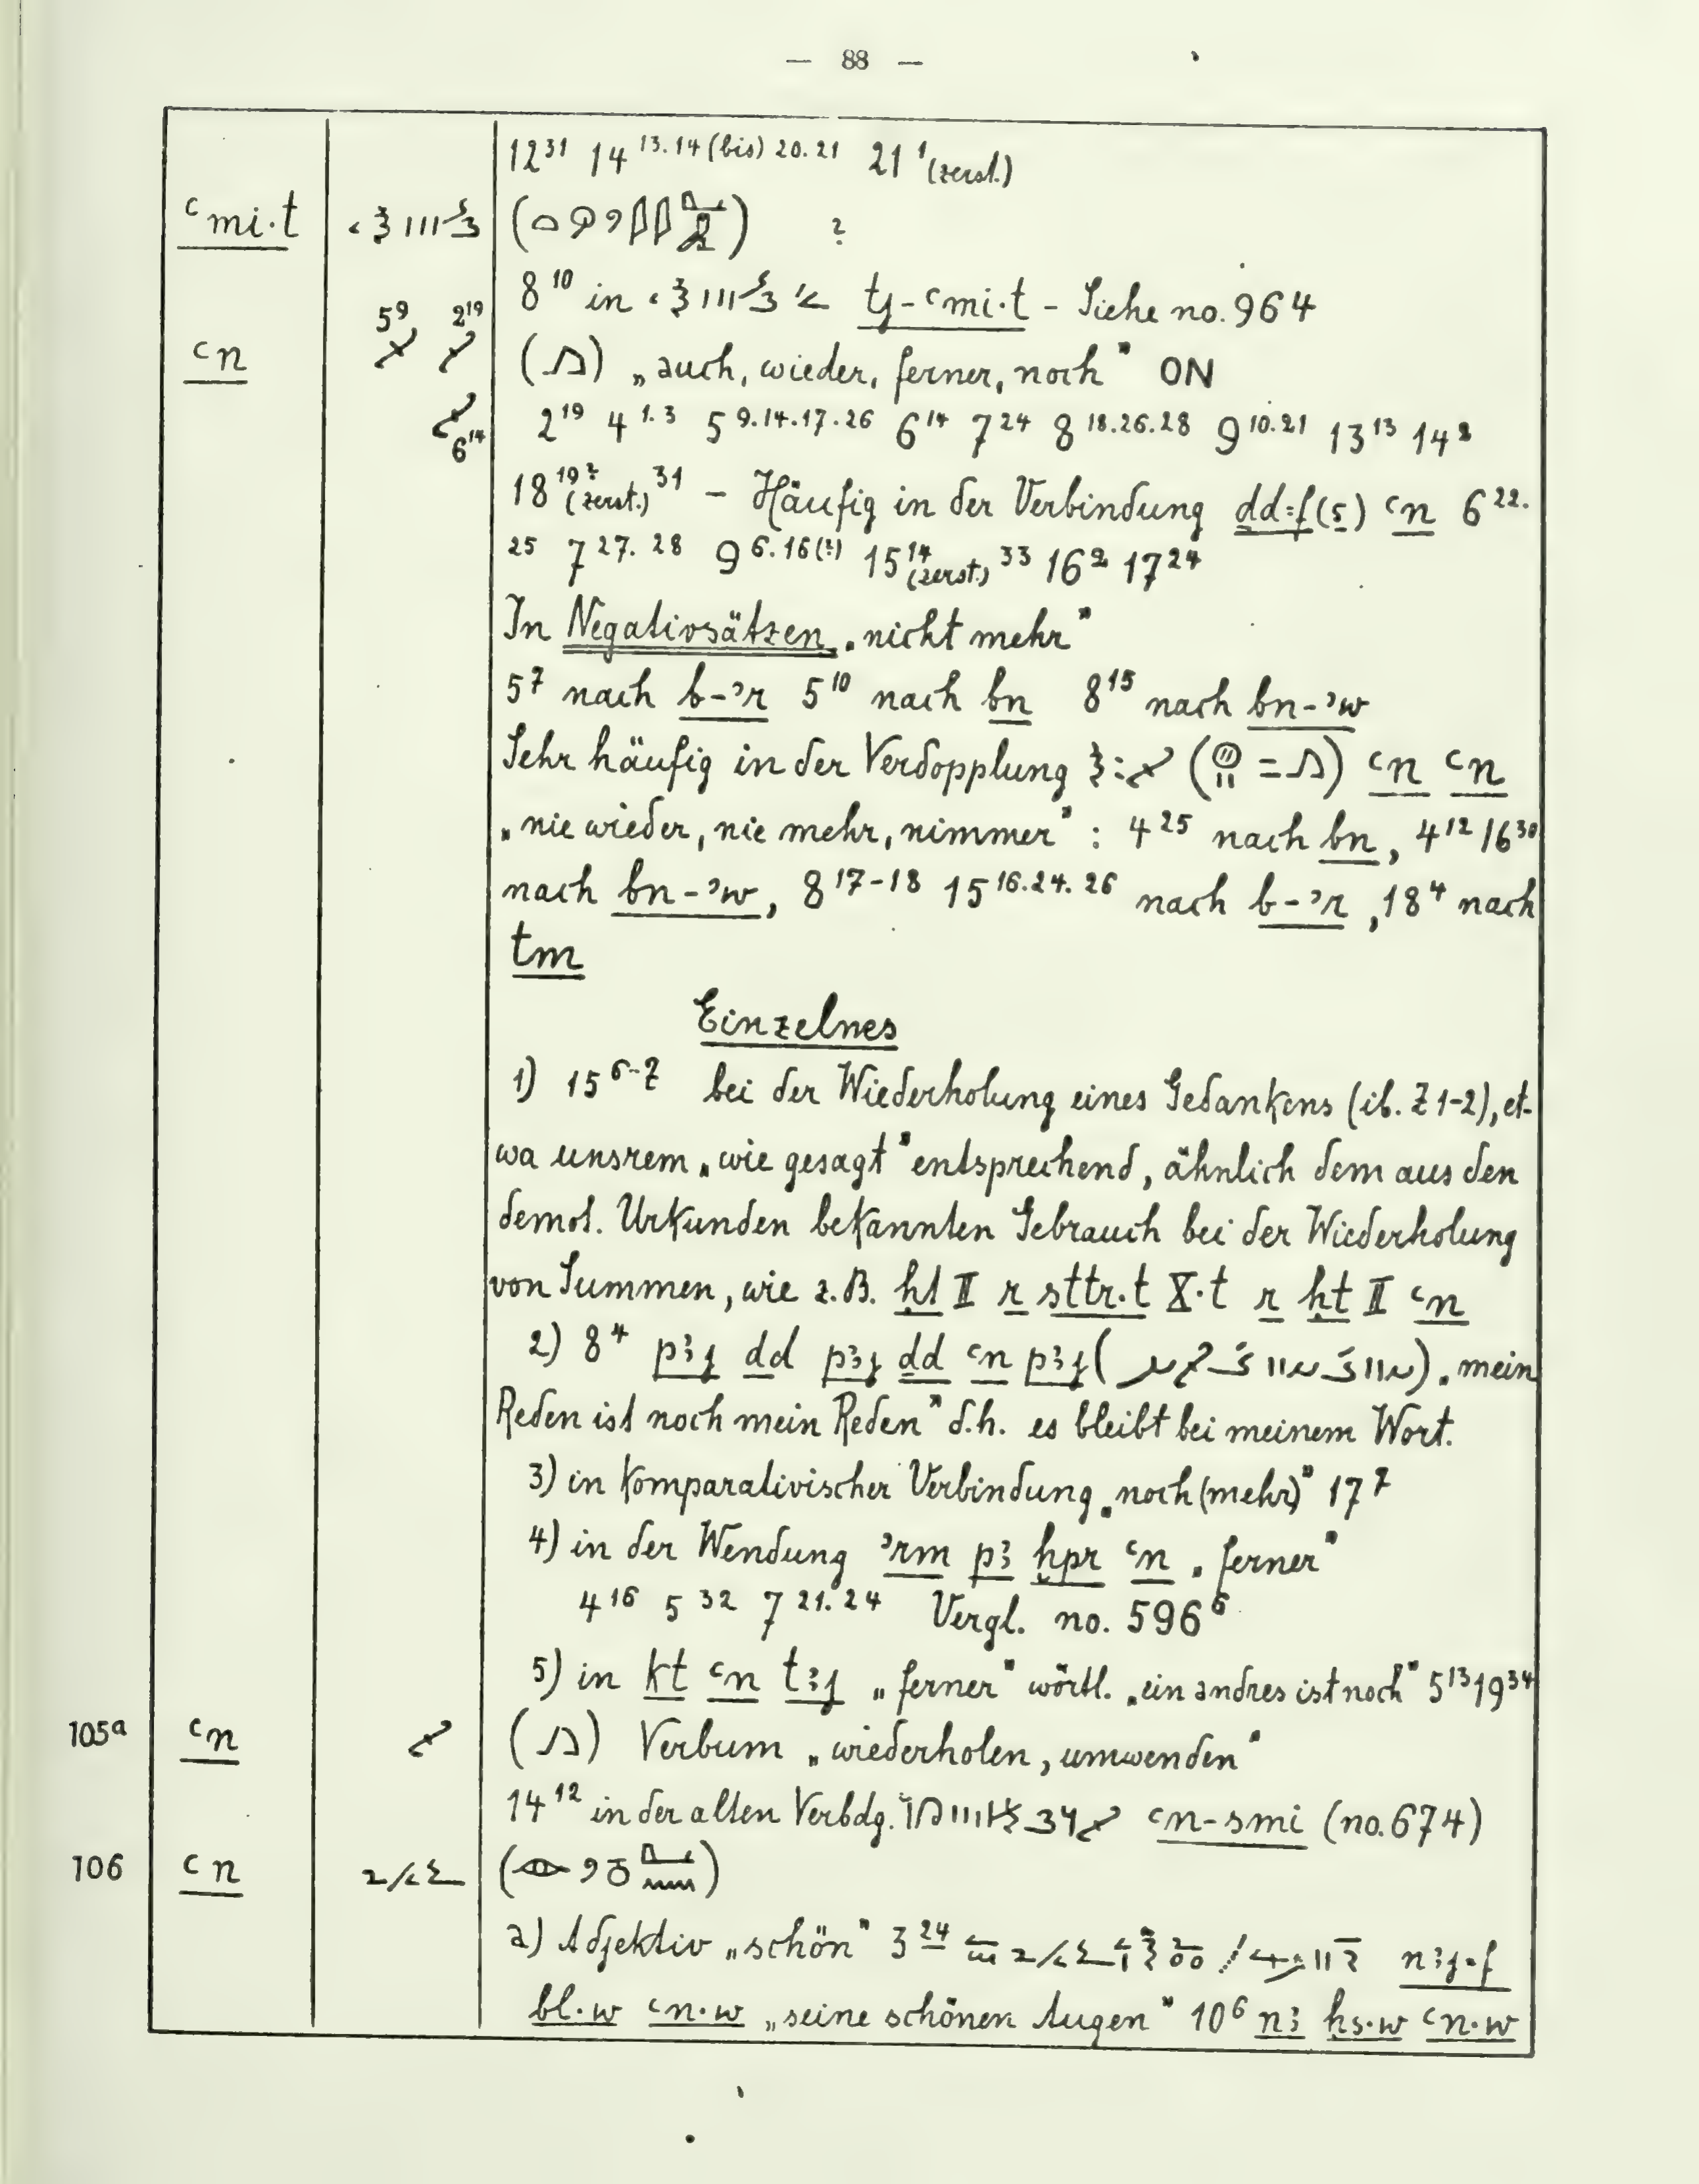 — 88 —
12³¹ 14 ¹³·¹⁴ (bis) ²⁰·²¹ 21 ¹ (zerst.)
ꜥmi·t ( ) ?
8 ¹⁰ in tj-ꜥmi·t - Siehe no. 964
5⁹ 2¹⁹
ꜥn (𓂻) „auch, wieder, ferner, noch” ON
6¹⁴ 2¹⁹ 4 ¹·³ 5 ⁹·¹⁴·¹⁷·²⁶ 6¹⁴ 7²⁴ 8 ¹⁸·²⁶·²⁸ 9 ¹⁰·²¹ 13¹³ 14²
18 ¹⁹? (zerst.) ³¹ – Häufig in der Verbindung dd=f(s) ꜥn 6 ²²·
²⁵ 7 ²⁷·²⁸ 9 ⁶·¹⁶(?) 15 ¹⁴ (zerst.) ³³ 16² 17²⁴
In Negativsätzen „nicht mehr”
5⁷ nach b-ʾr 5¹⁰ nach bn 8¹⁵ nach bn-ʾw
Sehr häufig in der Verdopplung ( = 𓂻) ꜥn ꜥn
„nie wieder, nie mehr, nimmer” : 4²⁵ nach bn, 4¹² 16³⁰
nach bn-ʾw, 8 ¹⁷⁻¹⁸ 15 ¹⁶·²⁴·²⁶ nach b-ʾr, 18⁴ nach
tm
Einzelnes
1) 15 ⁶⁻⁷ bei der Wiederholung eines Gedankens (ib. Z 1-2), et-
wa unsrem „wie gesagt” entsprechend, ähnlich dem aus den
demot. Urkunden bekannten Gebrauch bei der Wiederholung
von Summen, wie z.B. ḥt II r sttr·t X·t r ḥt II ꜥn
2) 8⁴ pꜣj dd pꜣj dd ꜥn pꜣj ( ) „mein
Reden ist noch mein Reden” d.h. es bleibt bei meinem Wort.
3) in komparativischer Verbindung „noch (mehr)” 17⁷
4) in der Wendung ʾrm pꜣ ḫpr ꜥn „ferner”
4¹⁶ 5³² 7²¹·²⁴ Vergl. no. 596⁶
5) in kt ꜥn tꜣj „ferner” wörtl. „ein andres ist noch” 5¹³ 19³⁴
105ᵃ ꜥn (𓂻) Verbum „wiederholen, umwenden”
14¹² in der alten Verbdg. ꜥn-smi (no. 674)
106 ꜥn ( )
a) Adjektiv „schön” 3²⁴ nꜣj=f
bl·w ꜥn·w „seine schönen Augen” 10⁶ nꜣ ḥs·w ꜥn·w